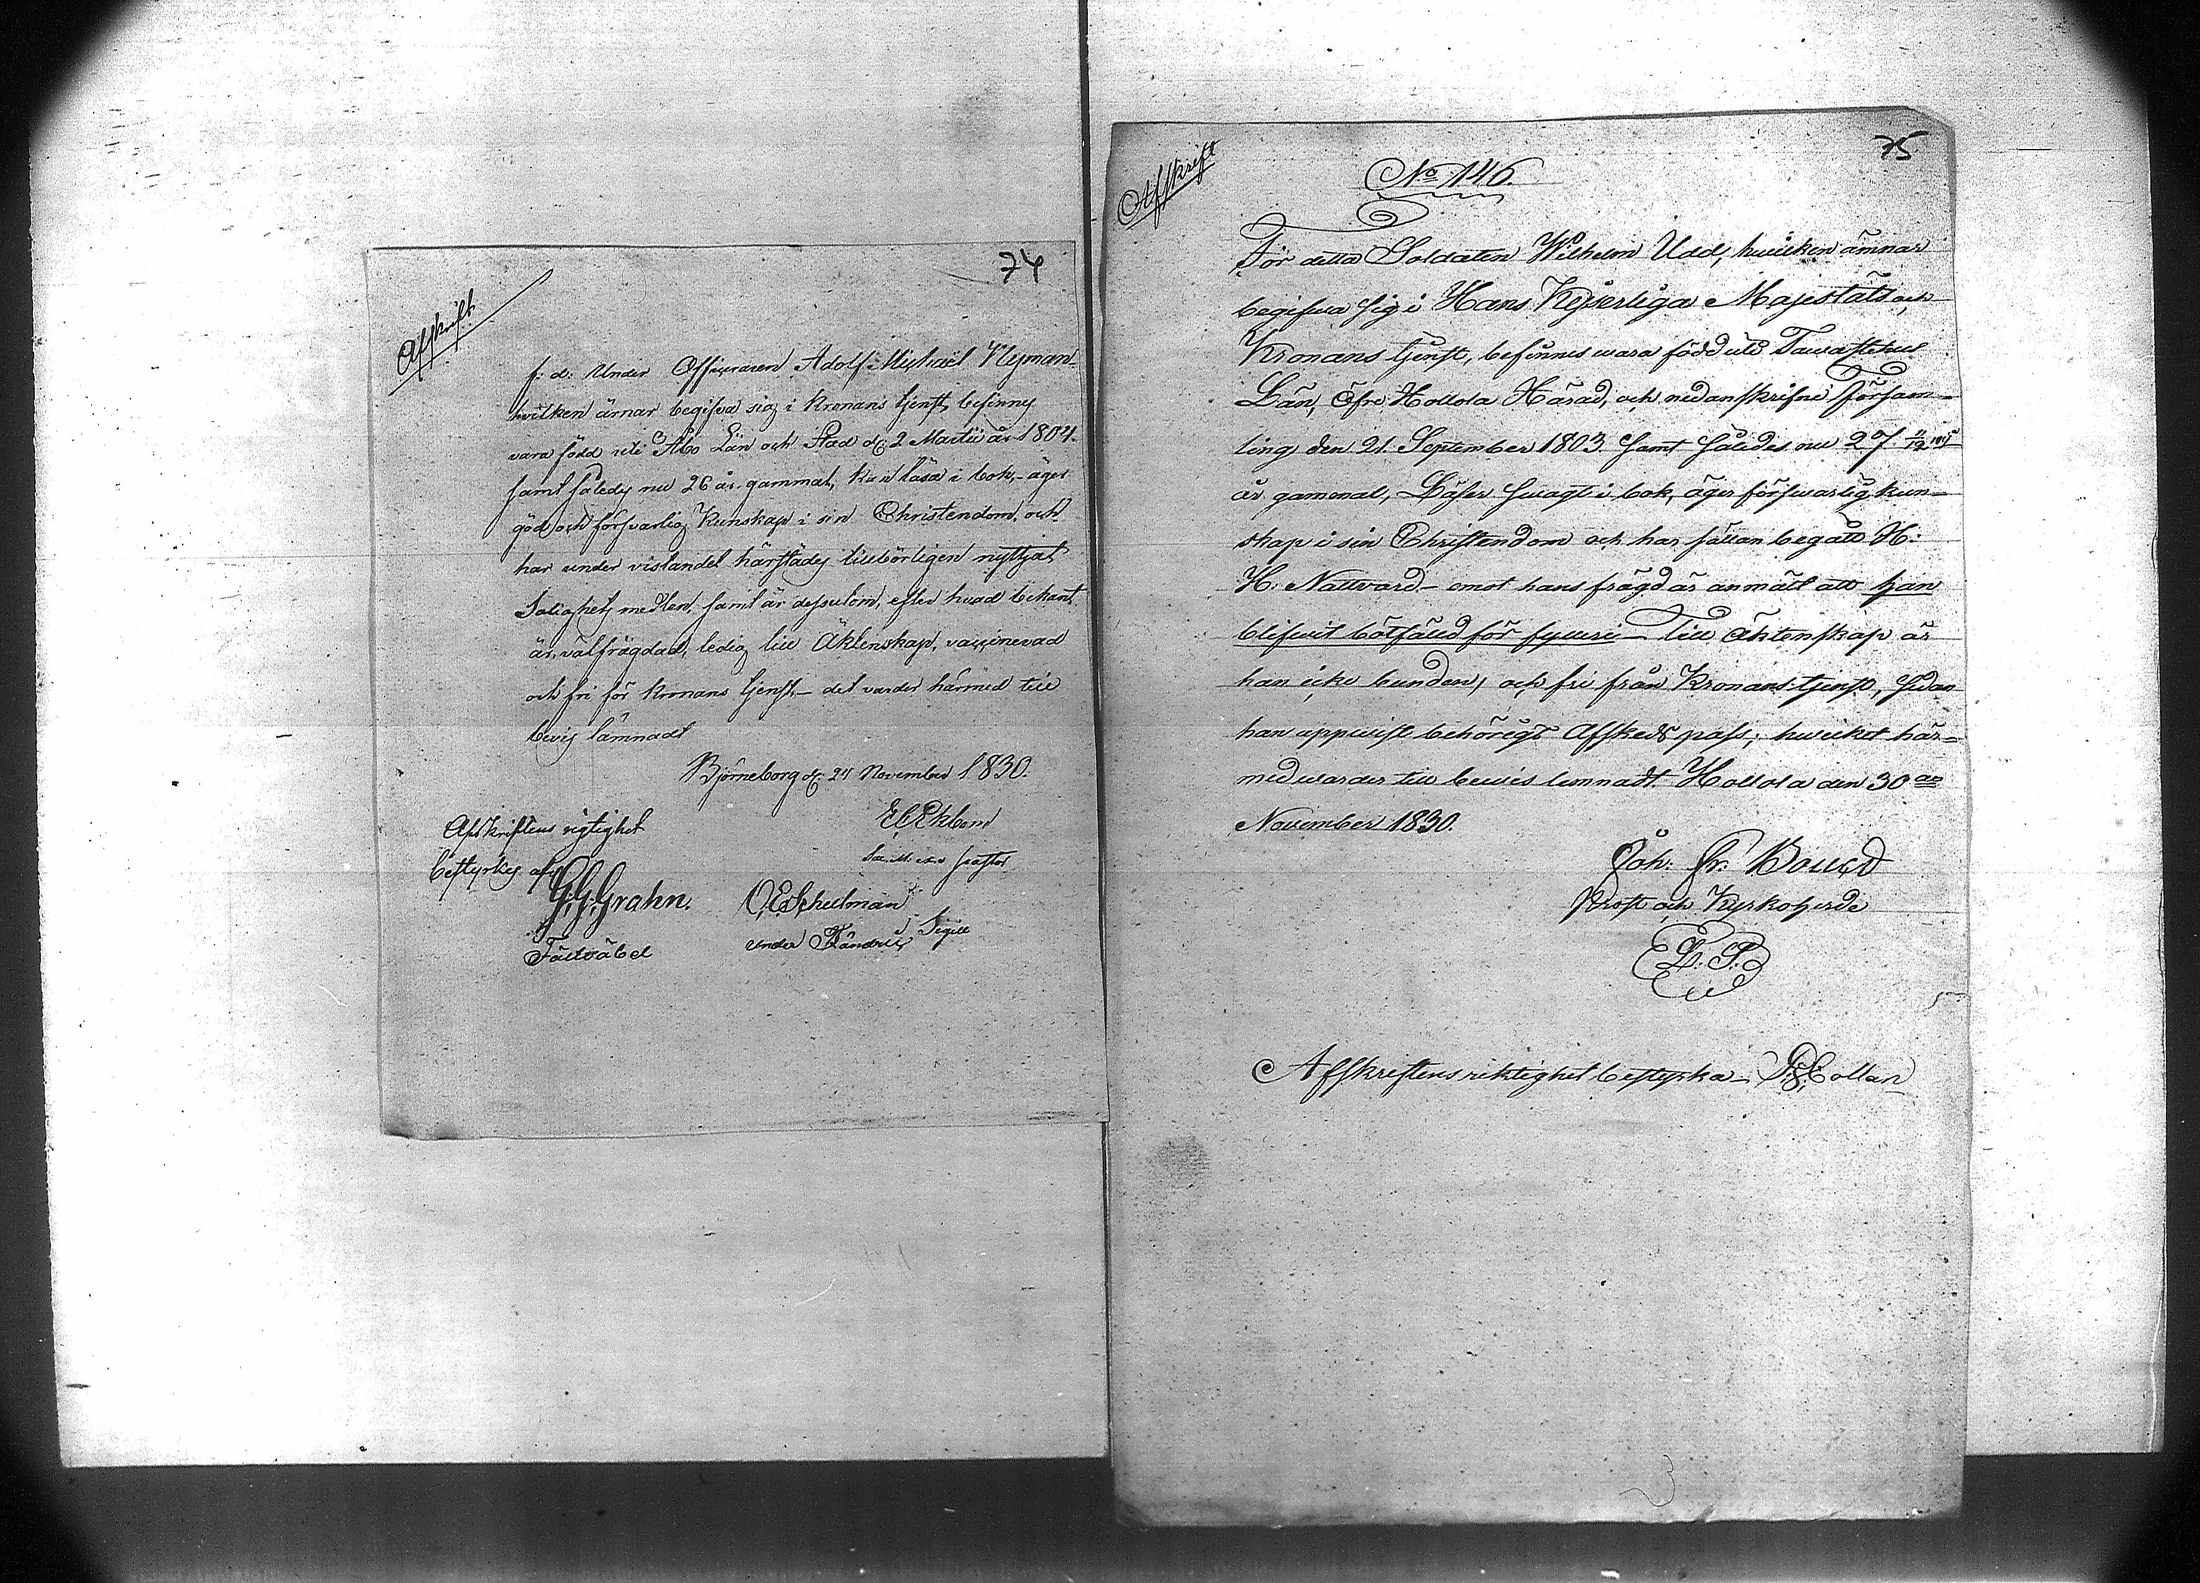 74
Afskrift
f: d: Under Officeraren Adolf Michaël Nyman
hvilken ärnar begifva sig i Kronans tjenst, befinnes
vara född uti Åbo Län och Stad d: 2 Martii år 1804.
samt således nu 26 år gammal, kan läsa i bok, - äger
god och försvarlig Kunskap i sin Christendom, och
har under vistandet härstädes tillbörligen nyttjat
Salighets medlen, samt är dessutom, efter hvad bekant
är, välfrägdad, ledig till Äktenskap, vaccinerad
och fri för Kronans tjenst, - det varder härmed till
bevis lämnadt
Björneborg d: 24 November 1830.
Afskriftens rigtighet
bestyrkes af
G. G. Grahn.
Fältväbel
Ekbom
pastor
O. E. Schulman
i Sigill
under
75
Afskrift
No 146.
För detta Soldaten Wilhelm Udd, hwilken ämnar
begifwa sig i Hans Kejserliga Majestäts och
Kronans tjenst, befinnes wara född uti Tawastehus
Län, Öfre Hollola Härad, och nedanskrifne Försam=
ling den 21. September 1803. samt således nu 27
år gammal, Läser swagt i bok, äger förswarlig kun=
skap i sin Christendom och har sällan begått H:
H: Nattvard - emot hans frägd är anmält att han
blifwit bötfälld för fylleri - Till Äktenskap är
han icke bunden, och fri från Kronans tjenst, sedan
han uppwist behörigt Afskeds pass; hwilket här=
med warder till bewis lemnadt. Hollola den 30
November 1830.
Joh: Fr:
Prost och Kyrkoherde
L. S.
Afskriftens riktighet bestyrka - Collan